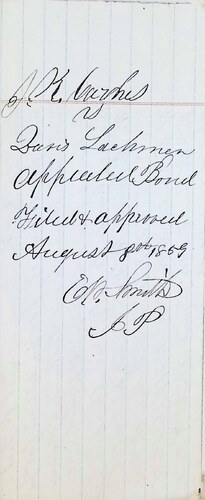 J. K. Hughes
vs
Davis Lachman
Appealed Bond
Filed & approved
August 8th 1859
Smith
J P